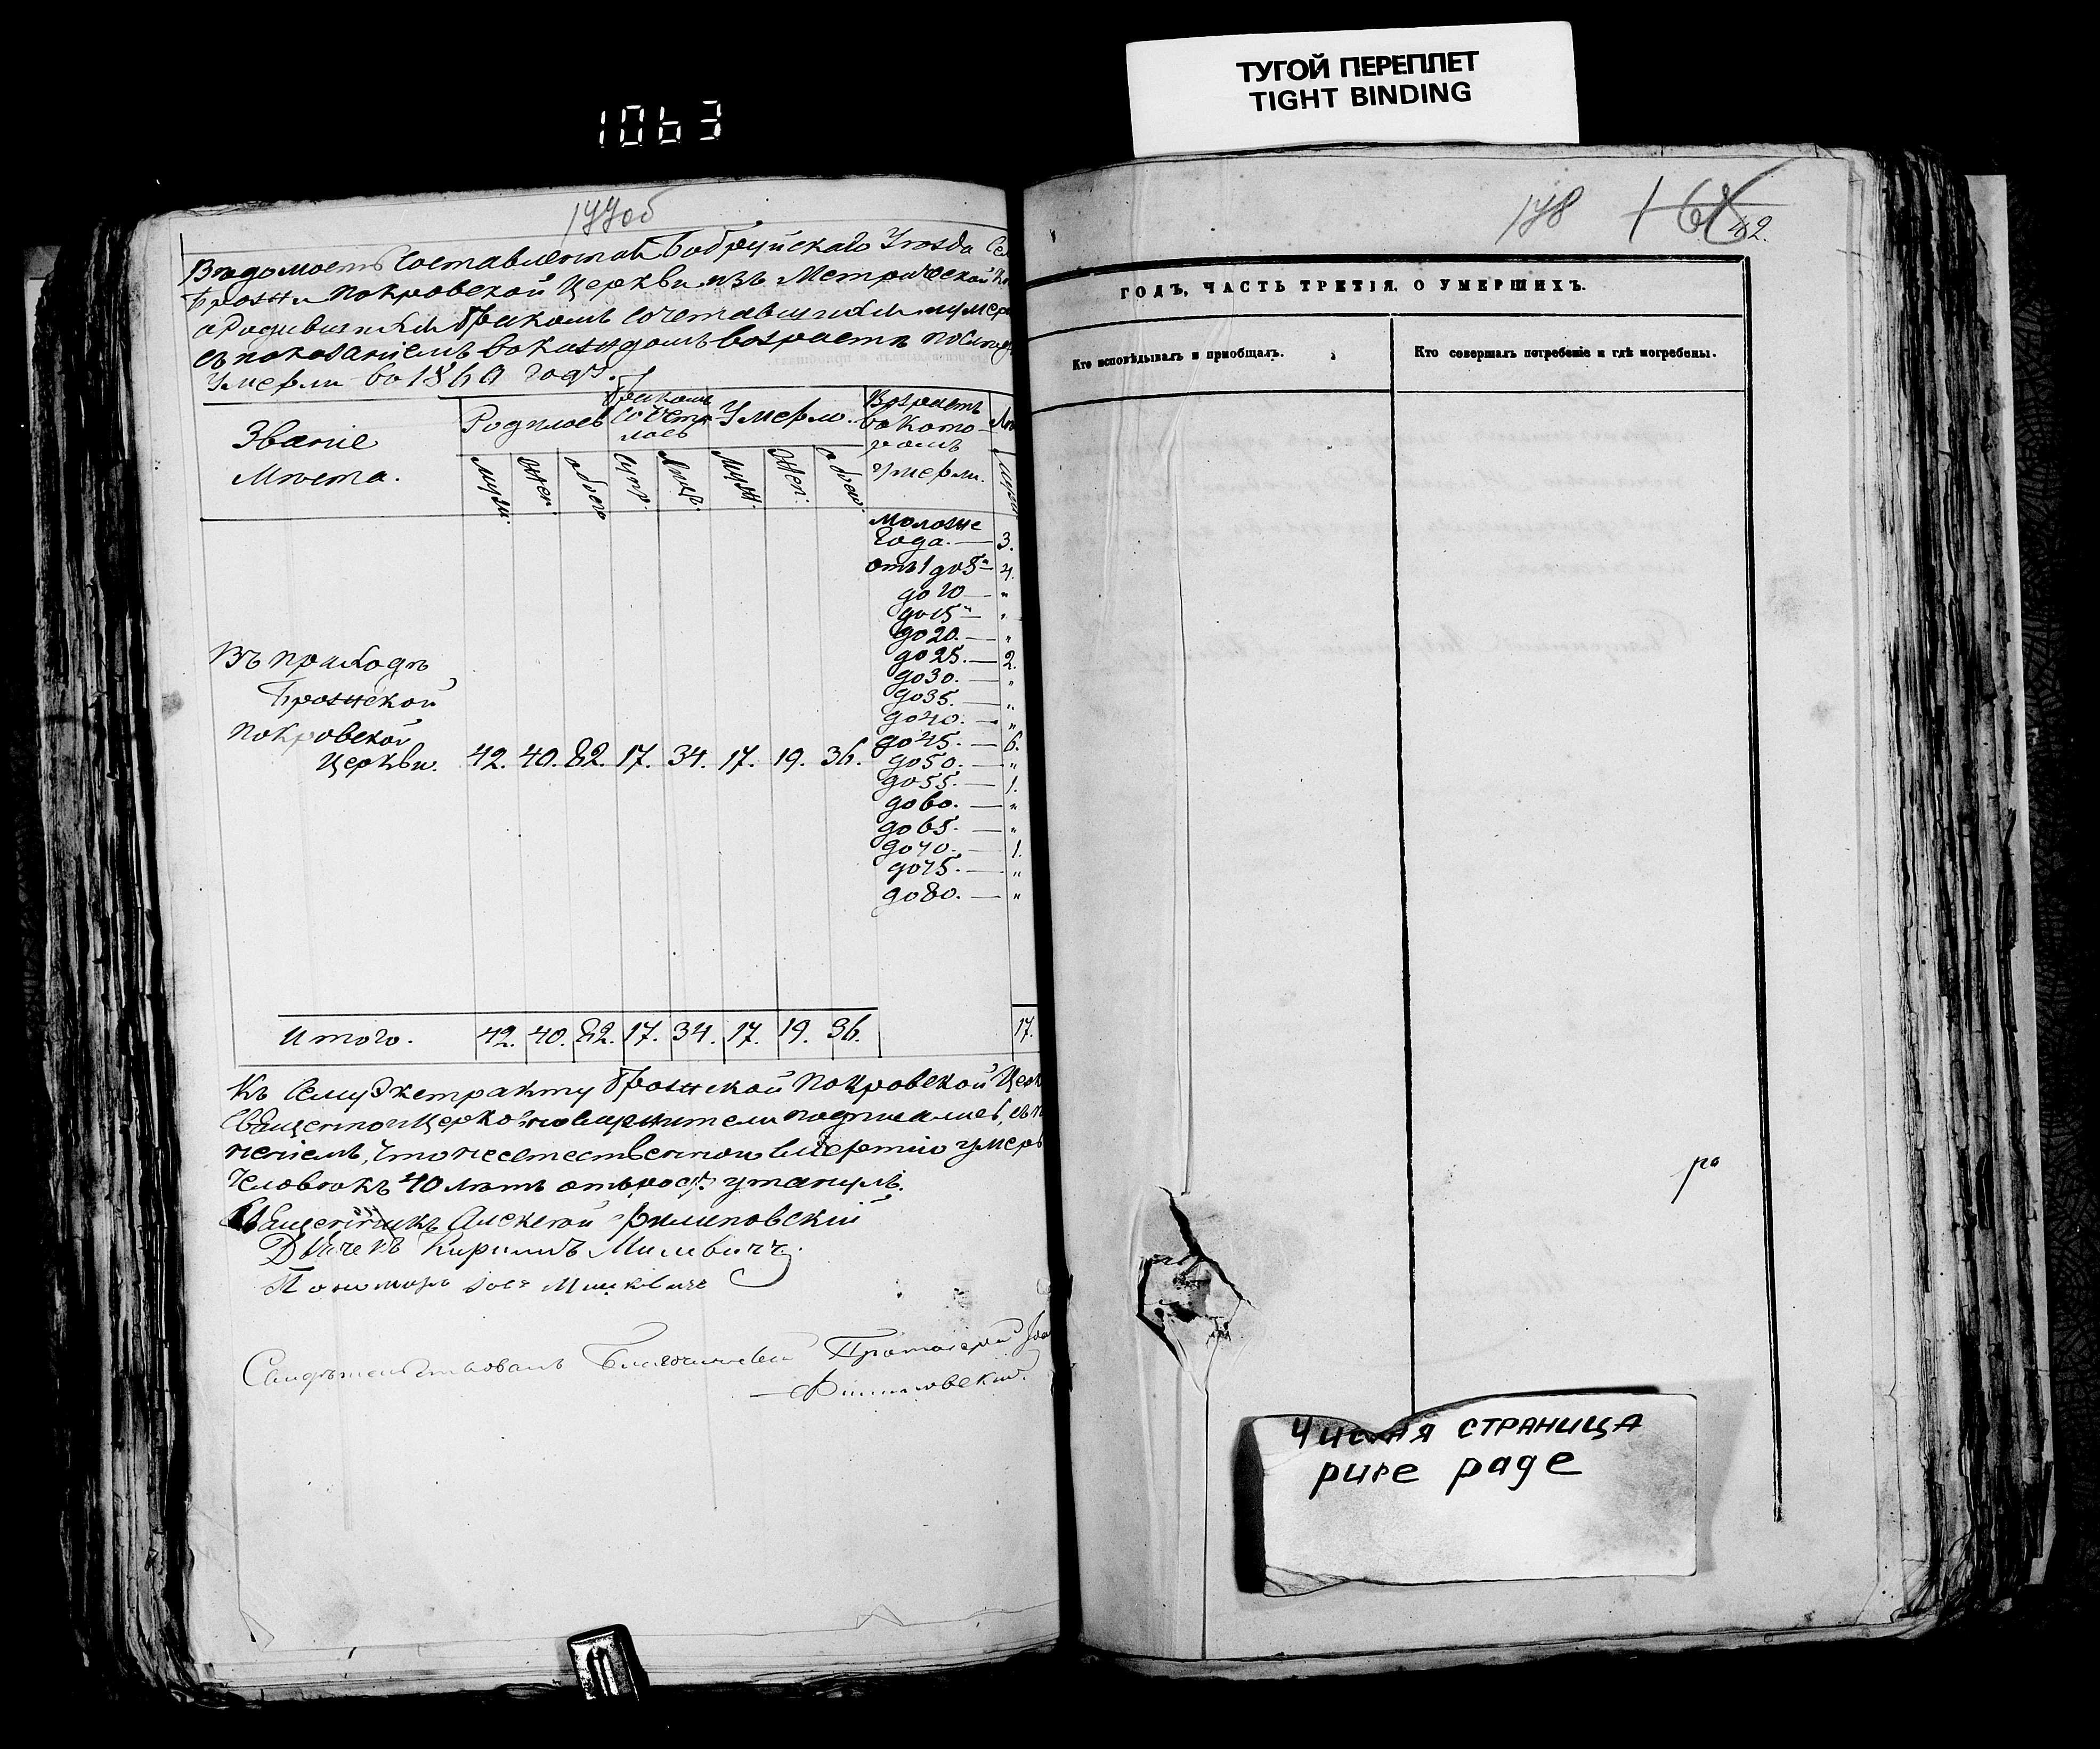 1063
ТУГОЙ ПЕРЕПЛЕТ
TIGHT BINDING
177об
Вѣдомость Составленная Бобруйскаго Уѣзда Се
Брожи Покровской Церкви изъ Метрической Кн
о Родившихся бракомъ сочетавшихся и умер
съ показаніемъ въ каждомъ возрастѣ
Умерли во 186 году.
Званіе
Мѣста.
Родилось
Бракомъ
Сочета-
лось
Умерло.
Возрастъ
въ Кото-
ромъ
Умерли.
Муж:
Жен:
обоего
Супр.
Лицъ.
Муж.
Жен:
обоег.
Моложе
Года. — 3.
отъ 1 до 5 — 4.
до 10 — "
до 15 — "
до 20. — "
до 25. — 2.
до 30. — "
до 35. — "
до 40. — "
до 45. — 6.
до 50. — "
до 55. — 1.
до 60. — "
до 65. — "
до 70. — 1.
до 75. — "
до 80. — "
Въ приходѣ
Брожской
Покровской
Церкви. 42. 40. 82. 17. 34. 17. 19. 36.
Итого. 42. 40. 82. 17. 34. 17. 19. 36. 17.
Къ Сему Экстракту Брожской Покровской Церк
Священно и Церковнослужители подписались, съ
неніемъ, что неестественною смертію умеръ
Человѣкъ 40 лѣтъ отъ рож: утанулъ.
Священникъ Алексѣй Филиповскій
Дьячекъ Кирилъ Милевичъ
Пономарь Мицкевичъ
Свидѣтельствовалъ Благочинный Протоіерей
Филиповскій.
178
168
42.
ГОДЪ, ЧАСТЬ ТРЕТІЯ, О УМЕРШИХЪ.
Кто исповѣдывалъ и пріобщалъ.
Кто совершалъ погребеніе и гдѣ погребены.
ро
Чистая СТРАНИЦА
pure page